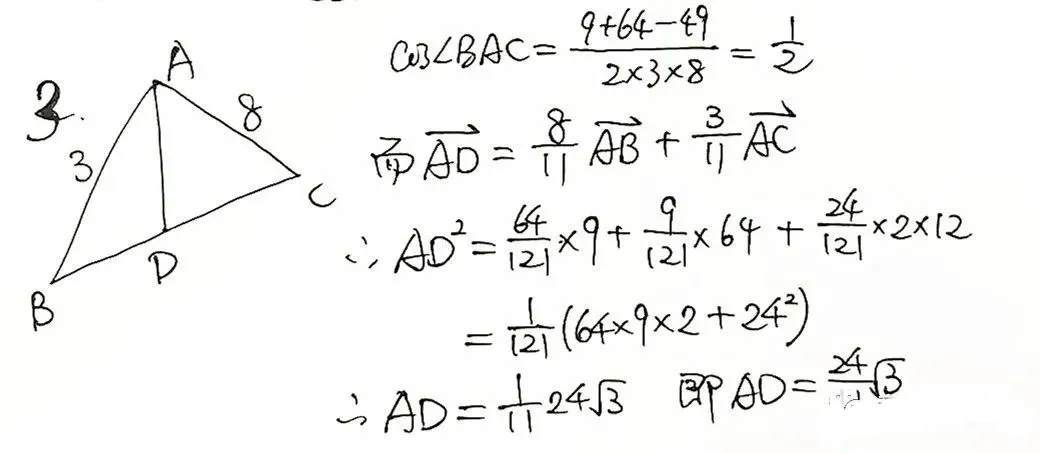 3.
A
3
8
B
D
C
cos∠BAC = (9+64-49)/(2×3×8) = 1/2
而 \overrightarrow{AD} = 8/11 \overrightarrow{AB} + 3/11 \overrightarrow{AC}
∴ AD² = 64/121 ×9 + 9/121 ×64 + 24/121 ×2×12
= 1/121 (64×9×2 + 24²)
∴ AD = 1/11 24√3 即 AD = 24/11 √3